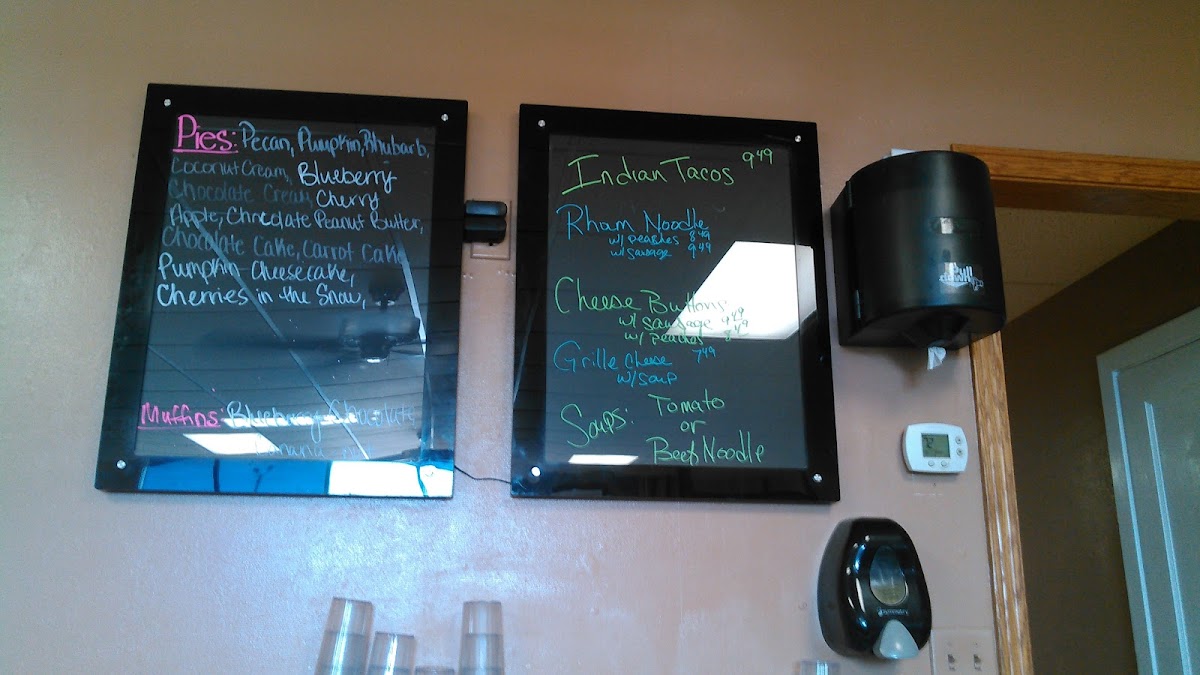 Pies: Pecan, Pumpkin, Rhubarb,
Coconut Cream, Blueberry
Chocolate Cream, Cherry
Apple, Chocolate Peanut Butter,
Chocolate Cake, Carrot Cake
Pumpkin Cheesecake,
Cherries in the Snow,
Muffins: Blueberry, Chocolate
Banana
Indian Tacos 9.49
Rham Noodle
w/ peaches 8.49
w/ sausage 9.49
Cheese Buttons
w/ sausage 9.49
w/ peaches 8.49
Grille Cheese 7.49
w/ soup
Soups: Tomato
or
Beef Noodle
Pull
down
72